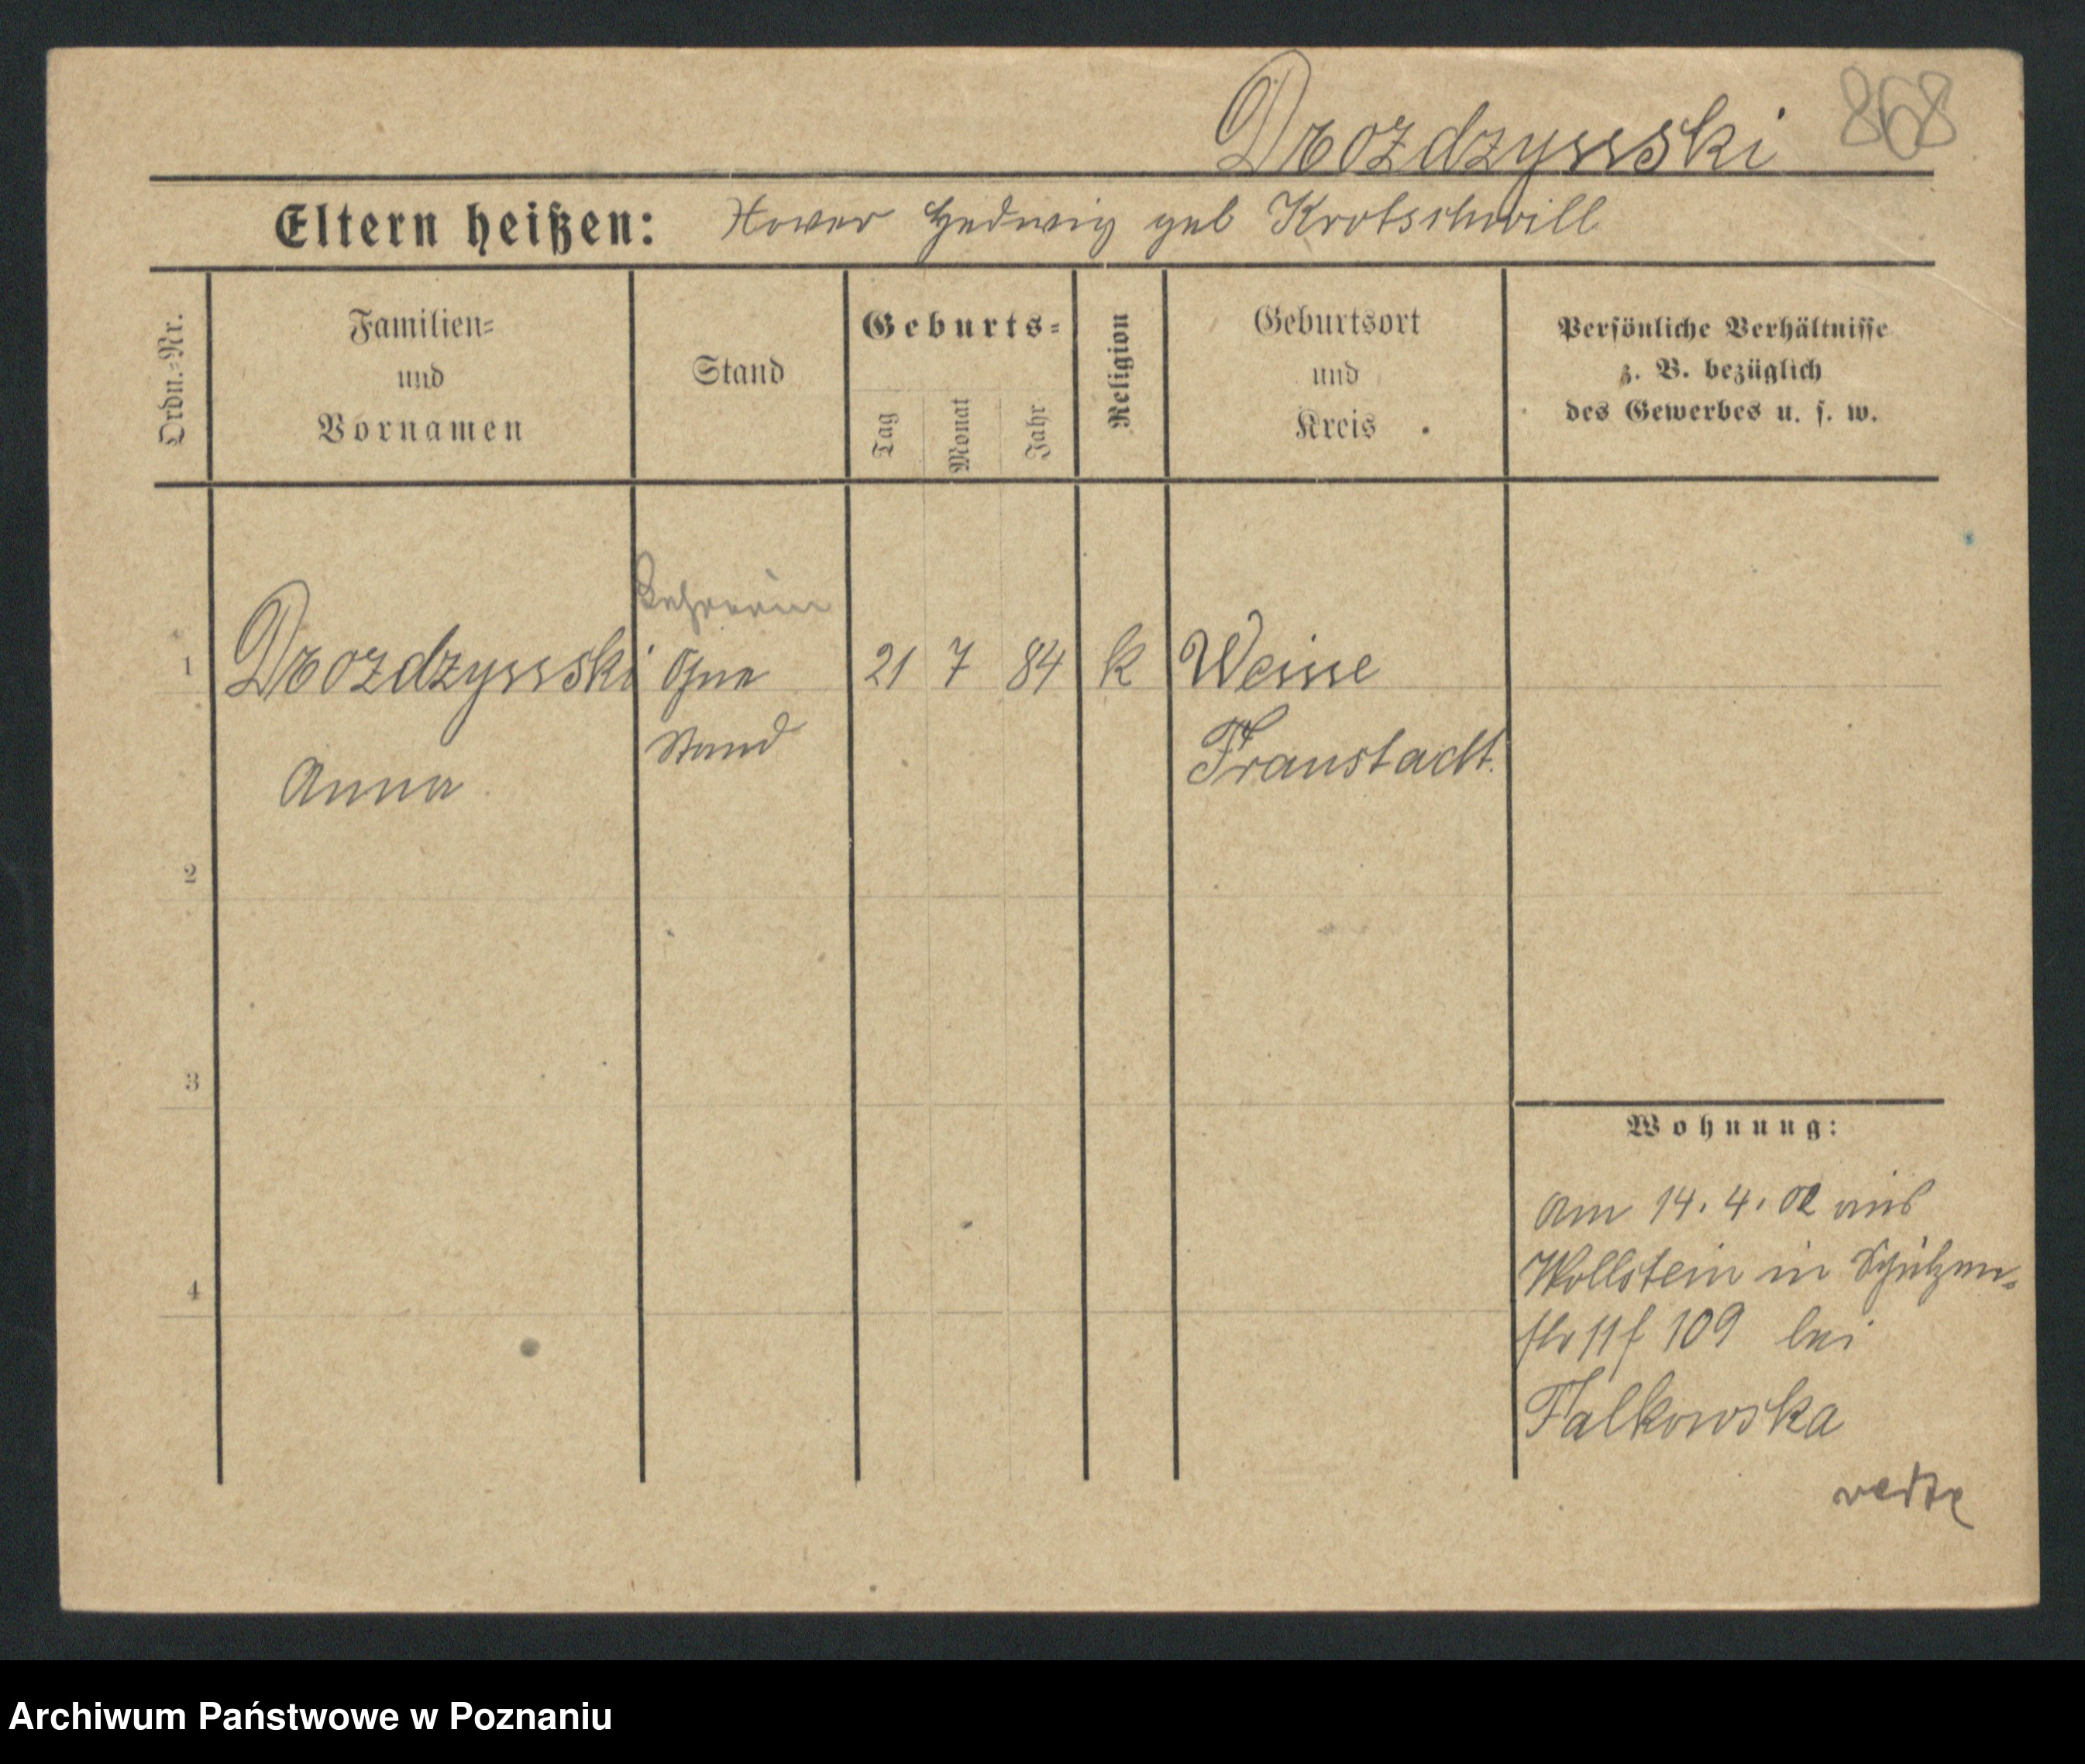 Drozdzynski 868
Eltern heißen: Xaver Hedwig geb Krotschwill
Ordn.-Nr.
Familien-
und
Vornamen
Stand
Geburts-
Tag
Monat
Jahr
Religion
Geburtsort
und
Kreis
Persönliche Verhältnisse
z. B. bezüglich
des Gewerbes u. s. w.
Lehrerin
1 Drozdzynski Ohne 21 7 84 k Weine
Stand Fraustadt.
Anna
2
3
4
Wohnung:
Am 14. 4. 02 aus
Wollstein in Schützen-
str 11 f 109 bei
Falkowska
Archiwum Państwowe w Poznaniu